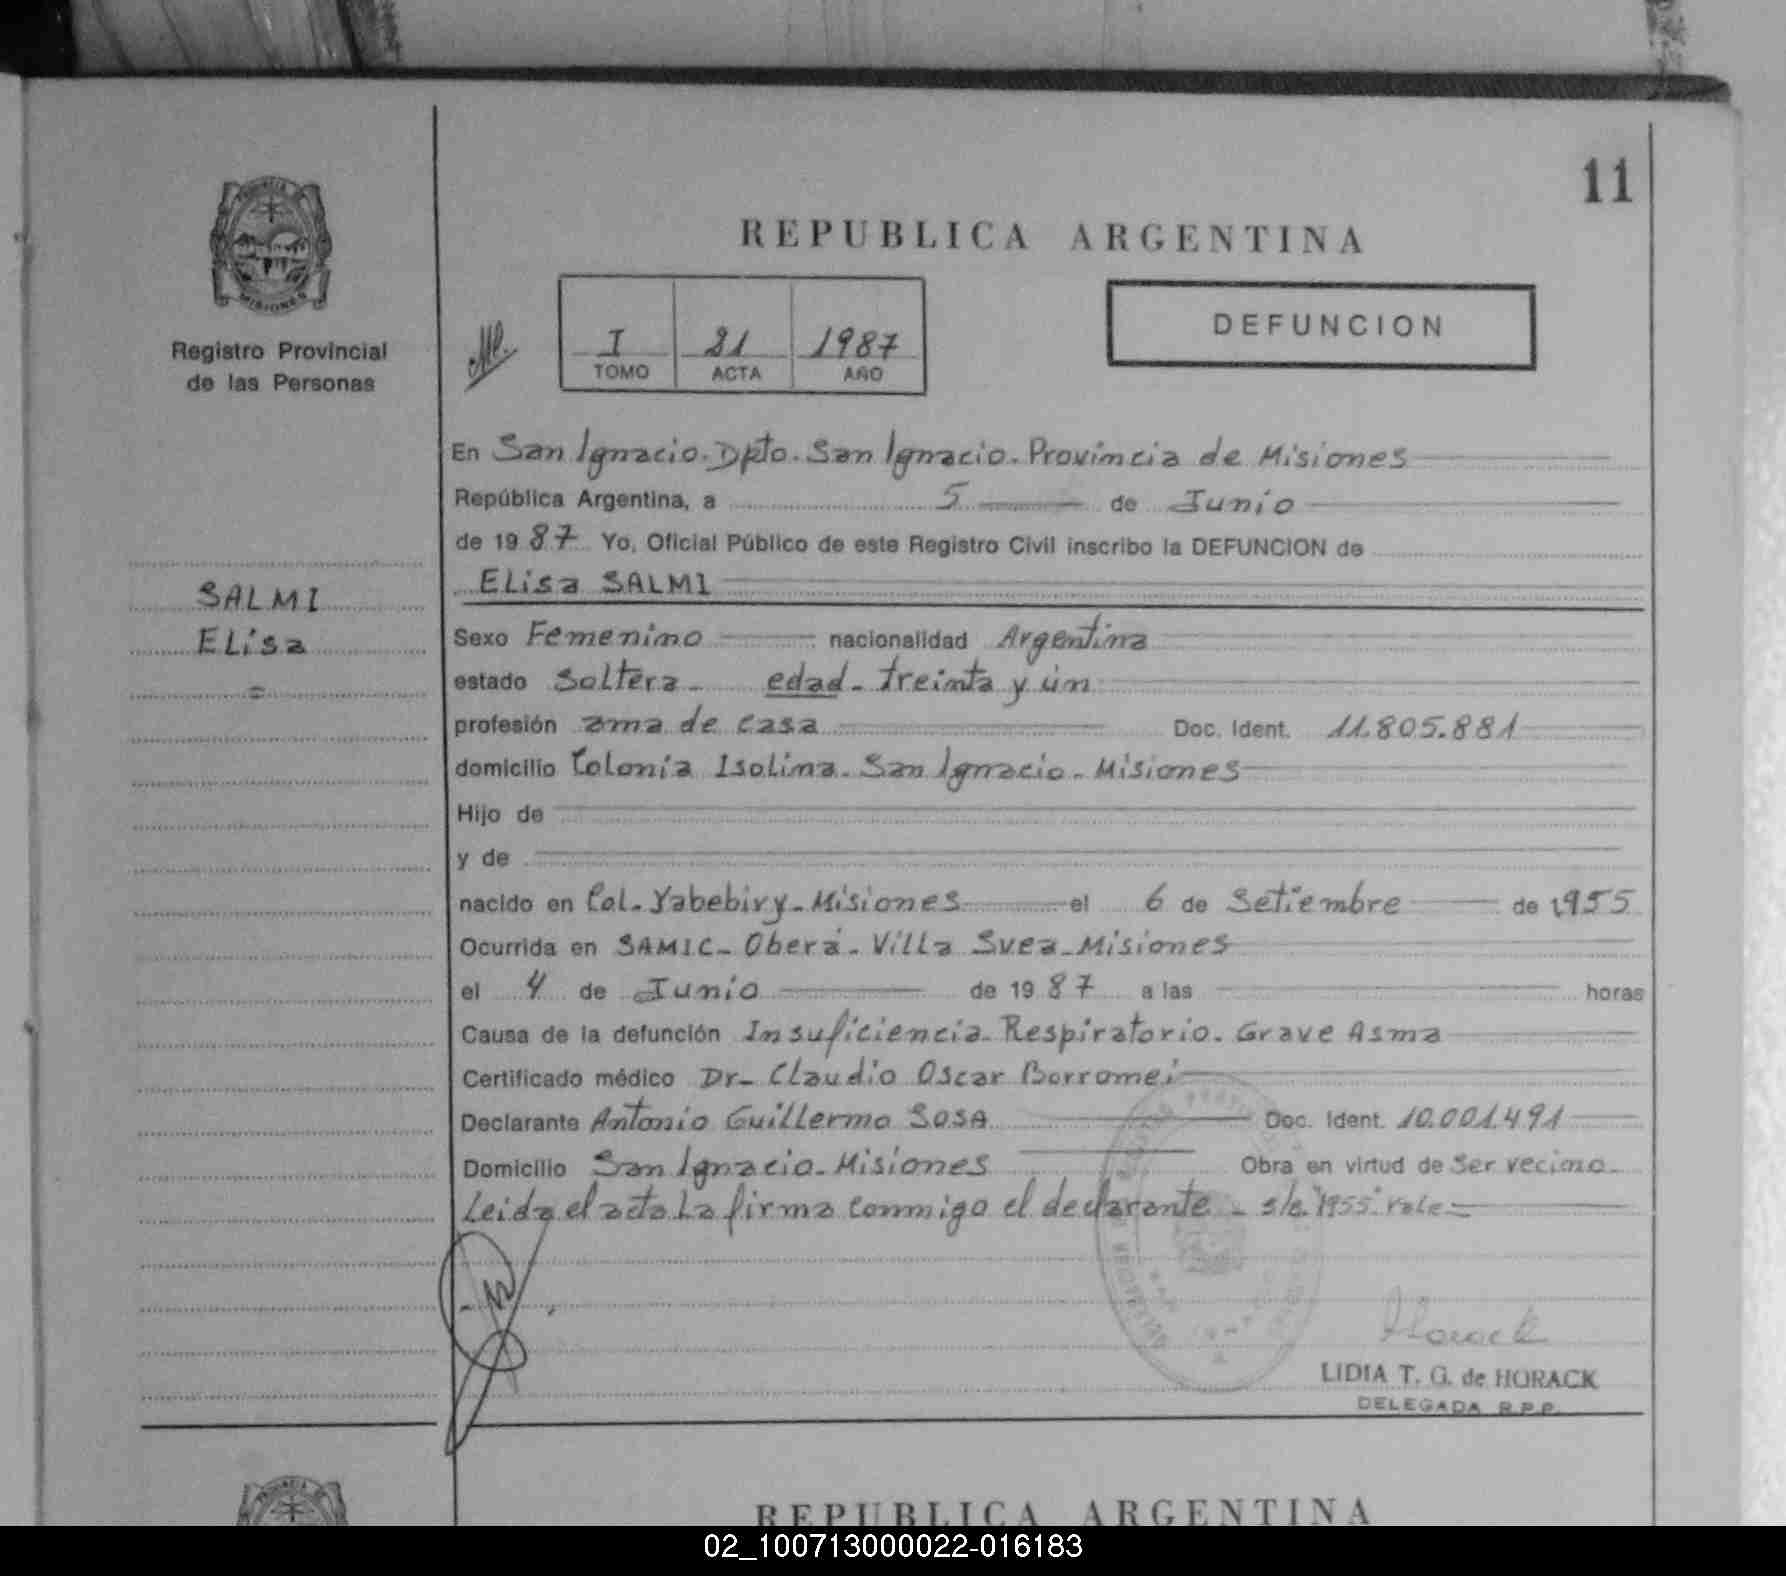 11
PROVINCIA
MISIONES
Registro Provincial
de las Personas
REPUBLICA ARGENTINA
I 21 1987
TOMO ACTA AÑO
DEFUNCION
SALMI
ELisa
=
En San Ignacio. Dpto. San Ignacio. Provincia de Misiones
República Argentina, a 5 de Junio
de 1987 Yo, Oficial Público de este Registro Civil inscribo la DEFUNCION de
ELisa SALMI
Sexo Femenino nacionalidad Argentina
estado Soltera - edad - treinta y un
profesión ama de casa Doc. Ident. 11.805.881
domicilio Colonia Isolina - San Ignacio - Misiones
Hijo de
y de
nacido en Col. Yabebiry - Misiones el 6 de Setiembre de 1955
Ocurrida en SAMIC - Oberá - Villa Svea - Misiones
el 4 de Junio de 1987 a las horas
Causa de la defunción Insuficiencia - Respiratorio. Grave Asma
Certificado médico Dr - Claudio Oscar Borromei
Declarante Antonio Guillermo SOSA Doc. Ident. 10.001.491
Domicilio San Ignacio - Misiones Obra en virtud de Ser vecino -
Leida el acta La firma conmigo el declarante - s/e. "1955" vale =
Horack
LIDIA T. G. de HORACK
DELEGADA R.P.P.
PROVINCIA
REPUBLICA ARGENTINA
02_100713000022-016183